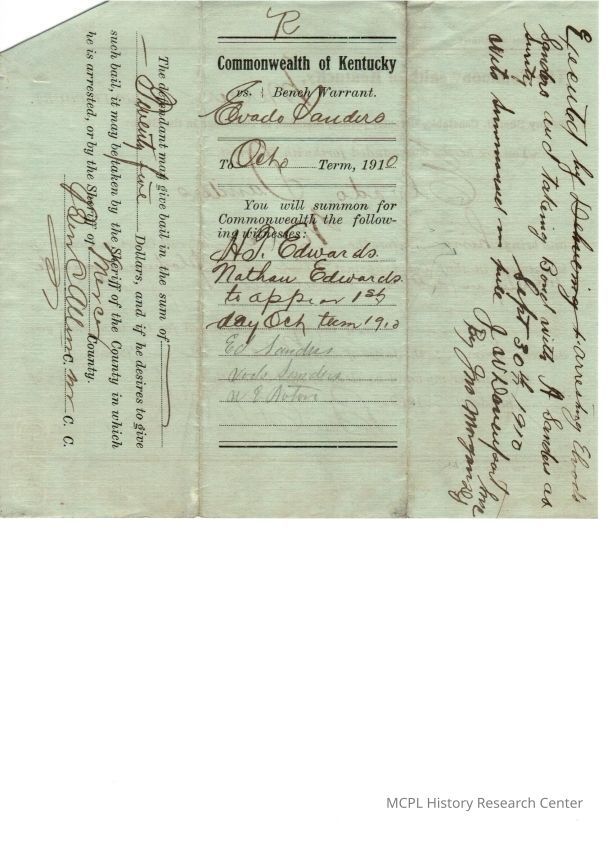 The defendant may give bail in the sum of
Twenty five Dollars, and if he desires to give
such bail, it may be taken by the Sheriff of the County in which
he is arrested, or by the Sheriff of Mercer County.
Ben C Allen C. M C. C.
R
Commonwealth of Kentucky
vs. Bench Warrant.
Evado Sanders
To Oct Term, 1910
You will summon for
Commonwealth the follow-
ing witnesses:
H.T. Edwards
Nathan Edwards
to appear 1st
day Oct term 1910
Ed Sanders
Sanders
Executed by Delivering & arresting
Sanders and taking Bond with A Sanders as
Surity
Sept 30th 1910
Wits Summoned in full J W Davenport
By Jno Morgan
MCPL History Research Center